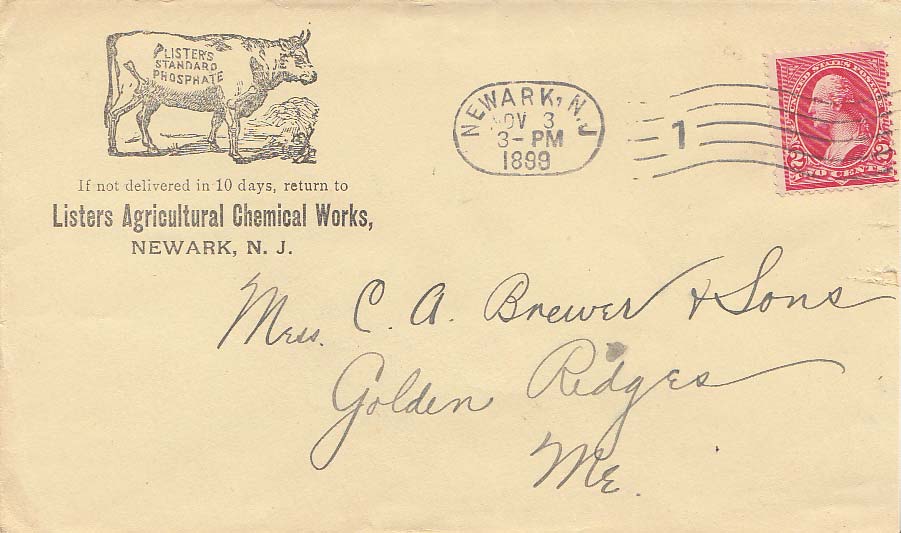 LISTER'S
STANDARD
PHOSPHATE
If not delivered in 10 days, return to
Listers Agricultural Chemical Works,
NEWARK, N. J.
NEWARK, N.J.
NOV 3
3-PM
1899
1
UNITED STATES POSTAGE
2 2
TWO CENTS
Mess. C. A. Brewer & Sons
Golden Ridges
Me.